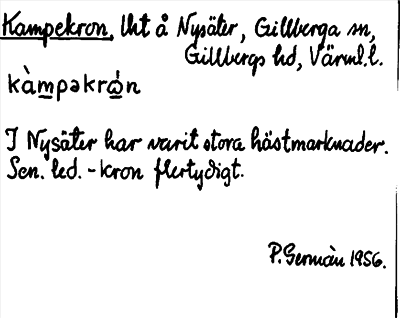 Kampekron, lht å Nysäter, Gillberga sn,
Gillbergs hd, Värml.l.
kàmpəkrὼn
I Nysäter har varit stora hästmarknader.
Sen. led. -kron flertydigt.
P. Germàn 1956.